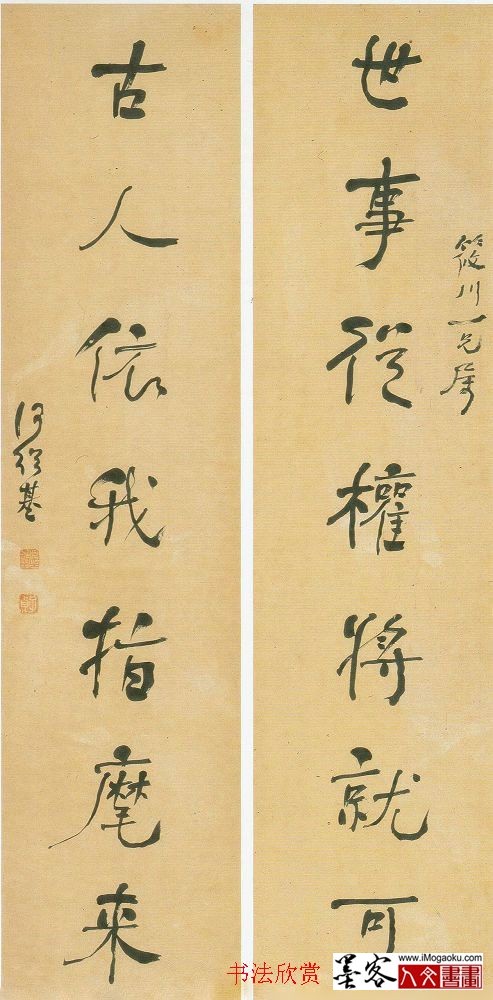 世事從權將就可
筱川一兄屬
古人依我指麾來
何紹基
书法欣赏
墨客
www.iMogaoku.com
人文書畫